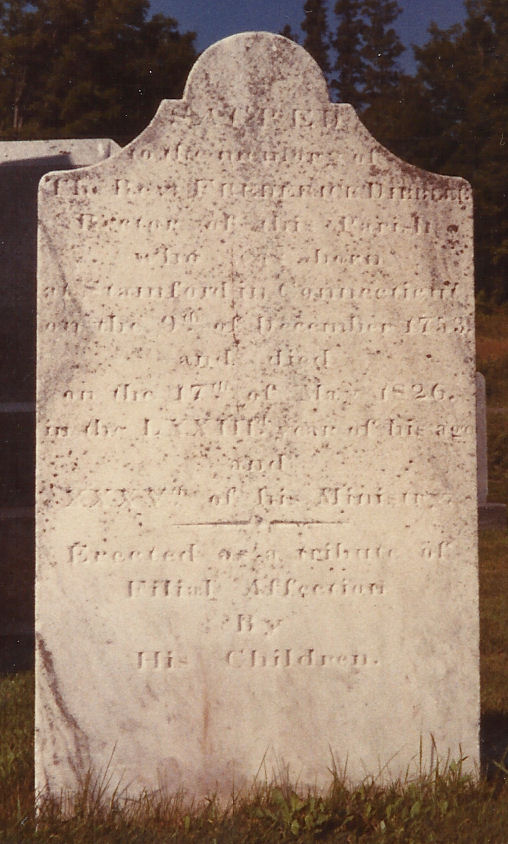 SACRED
to the memory of
The Revd. FREDERICK DIBBLEE
Rector of this Parish
who was born
at Stamford in Connecticut
on the 9th of December 1753
and died
on the 17th of May 1826.
in the LXXIII. year of his age
and
XXXVth of his Ministry
Erected as a tribute of
Filial Affection
By
His Children.